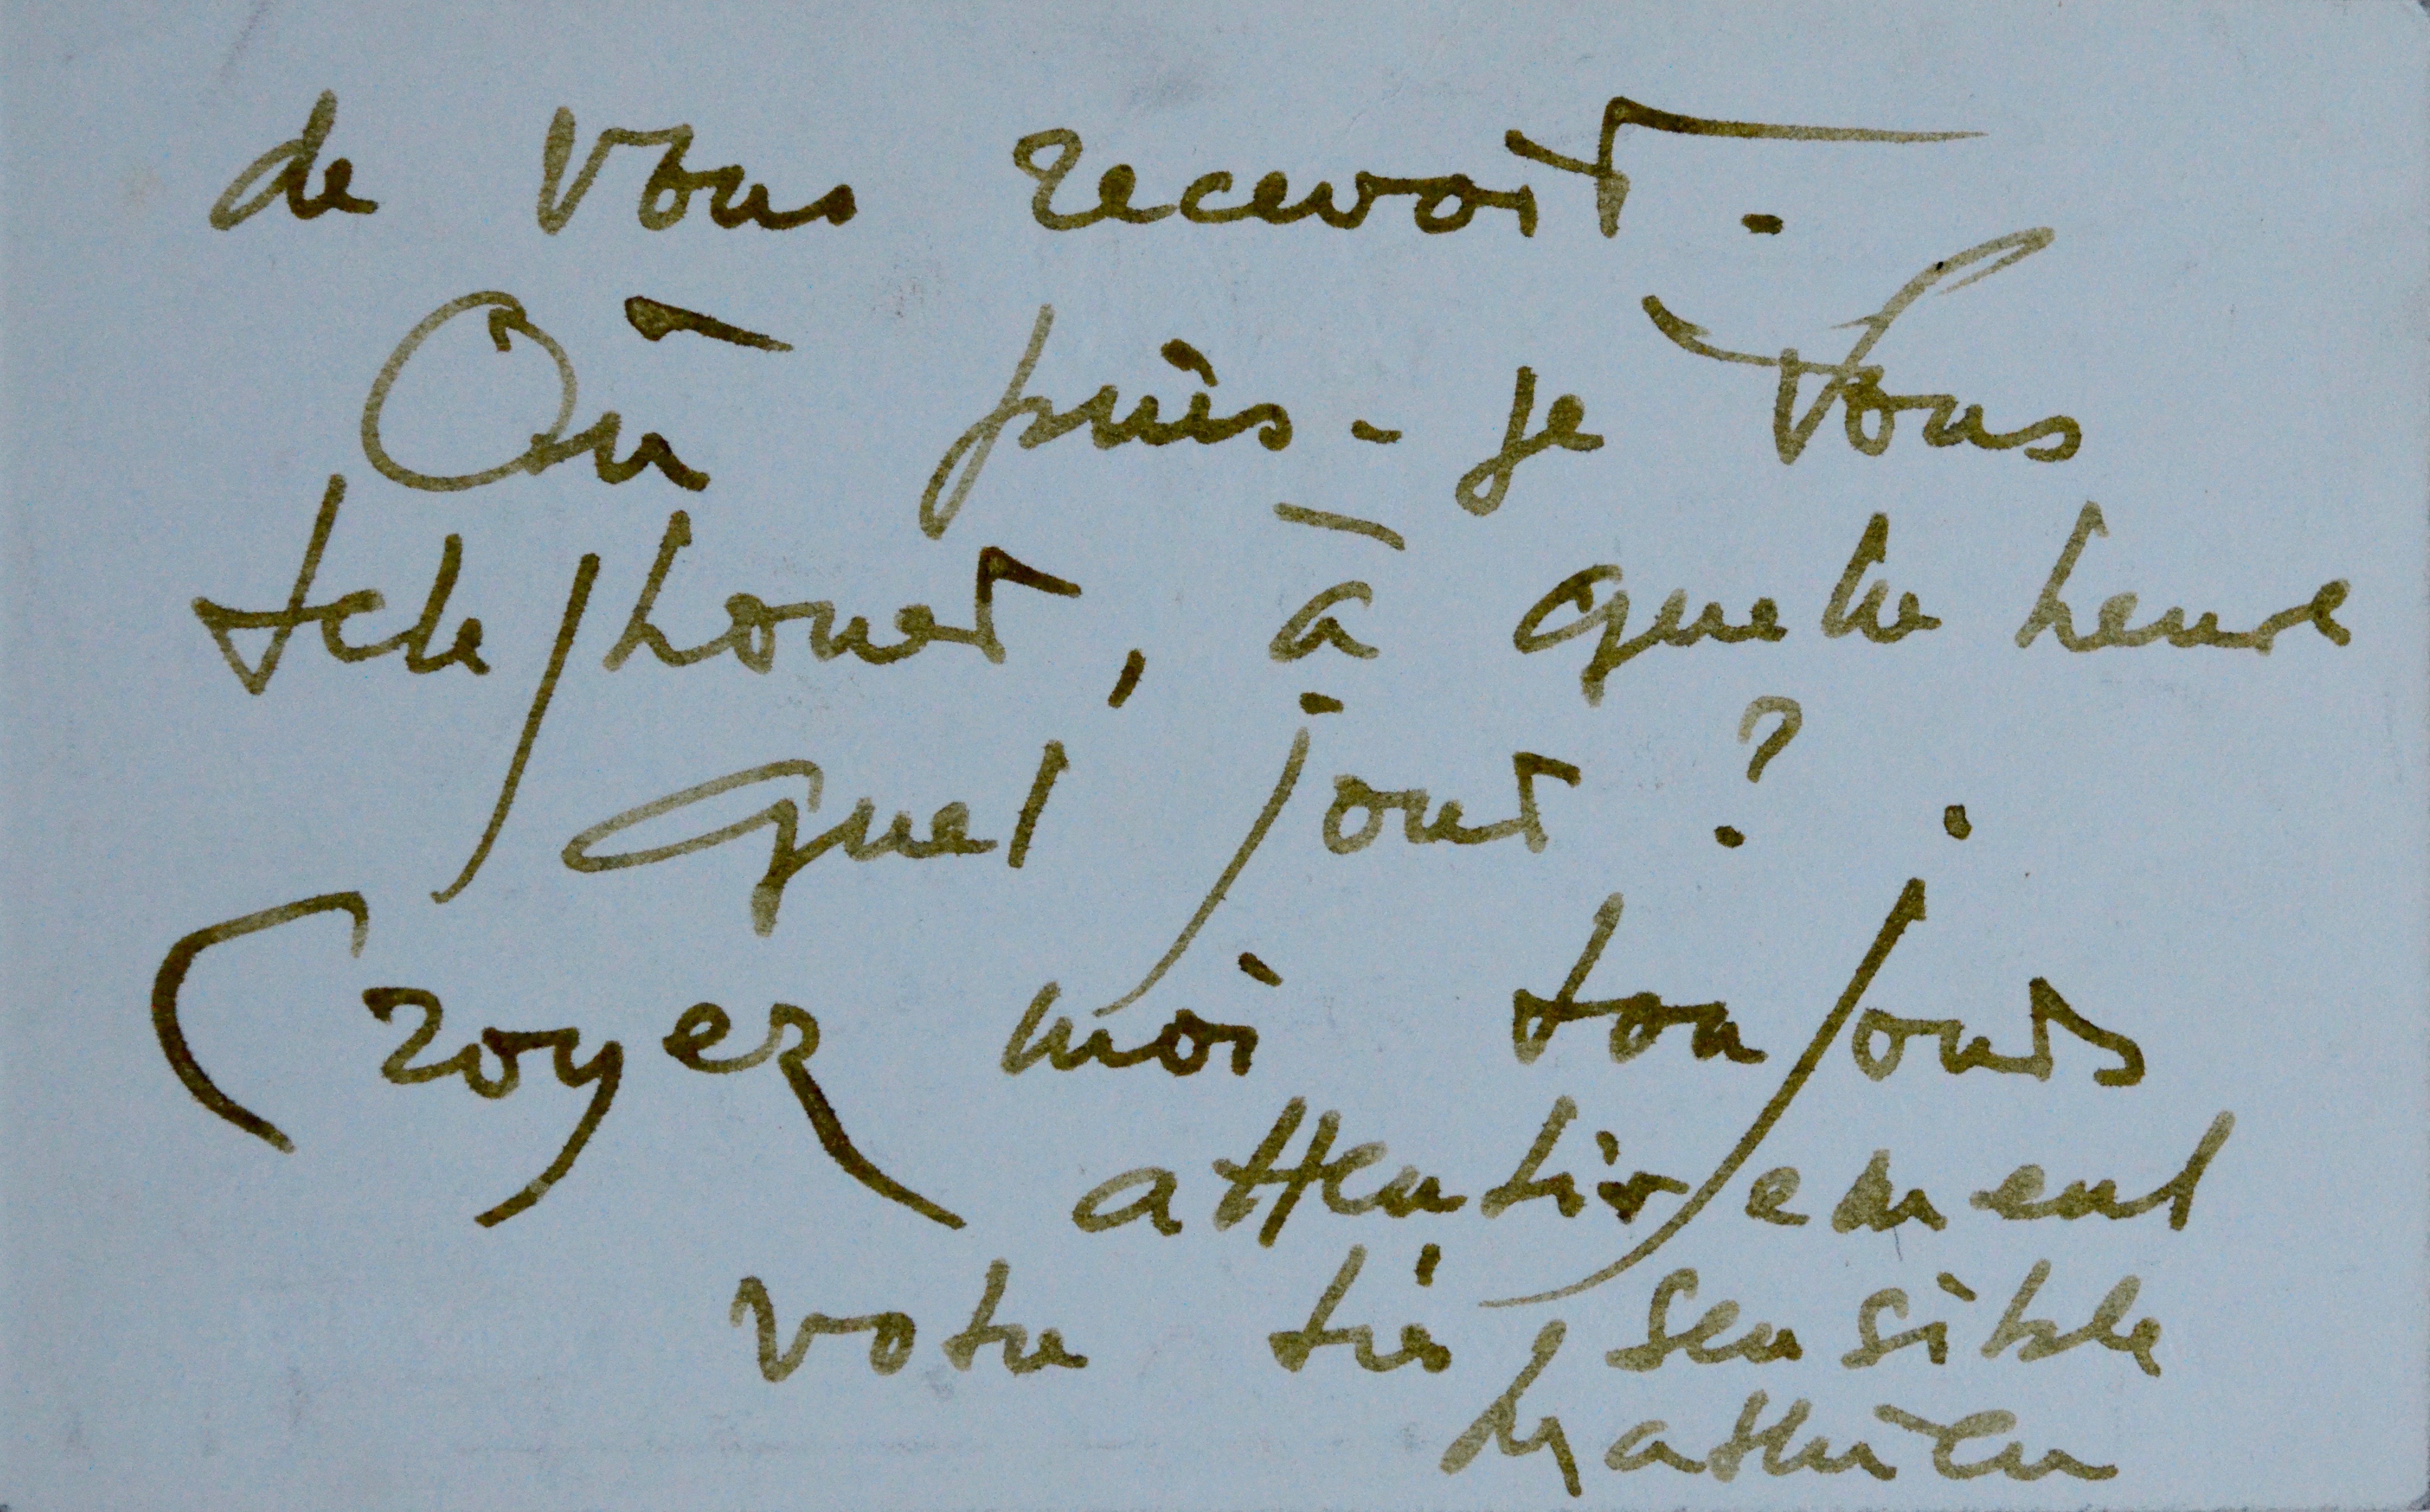 de vous recevoir.
Où puis-je vous
telephoner, à quelle heure
quel jour ?
Croyez moi toujours
attentivement
votre très sensible
Mathieu